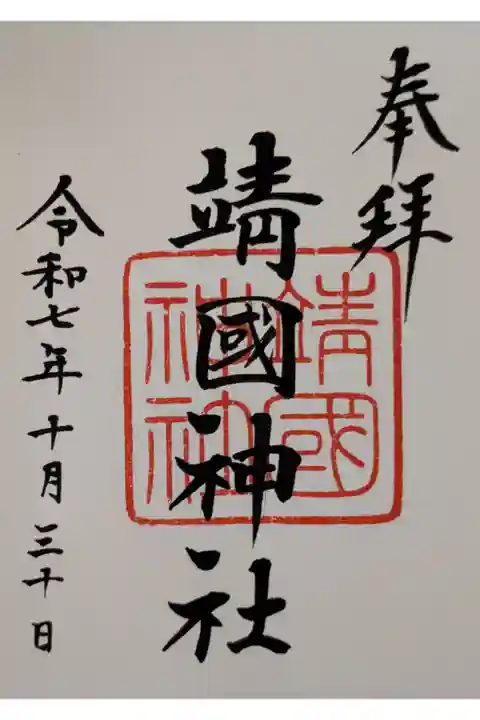 奉拜
靖國神社
靖國
神社
令和七年十月三十日